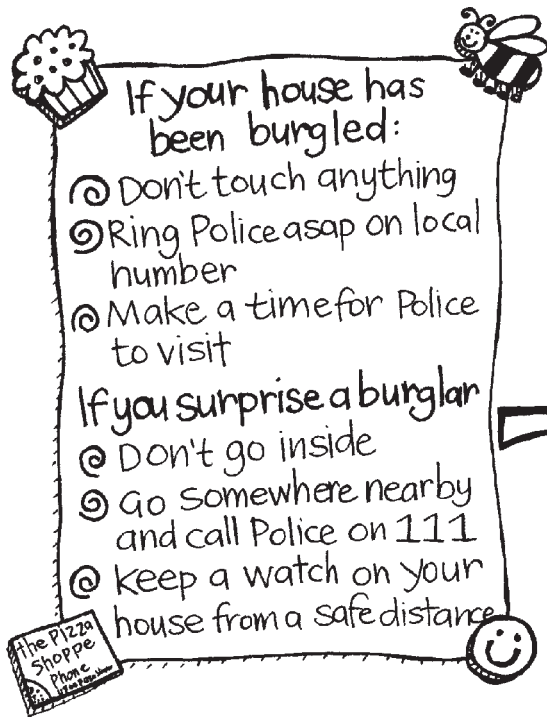 If your house has
been burgled:
Don't touch anything
Ring Police asap on local
number
Make a time for Police
to visit
If you surprise a burglar
Don't go inside
Go somewhere nearby
and call Police on 111
Keep a watch on your
house from a safe distance
the Pizza
Shoppe
Phone